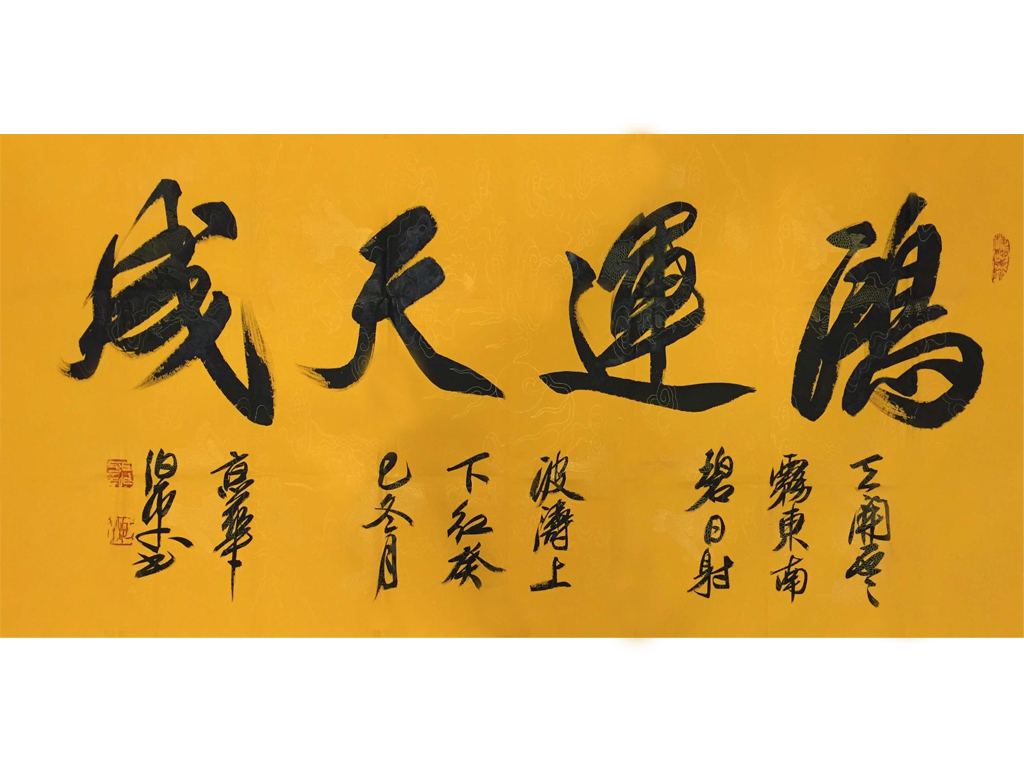 鴻運天成
天開雲
霧東南
碧日射
波濤上
下紅癸
巳冬月
京華
書